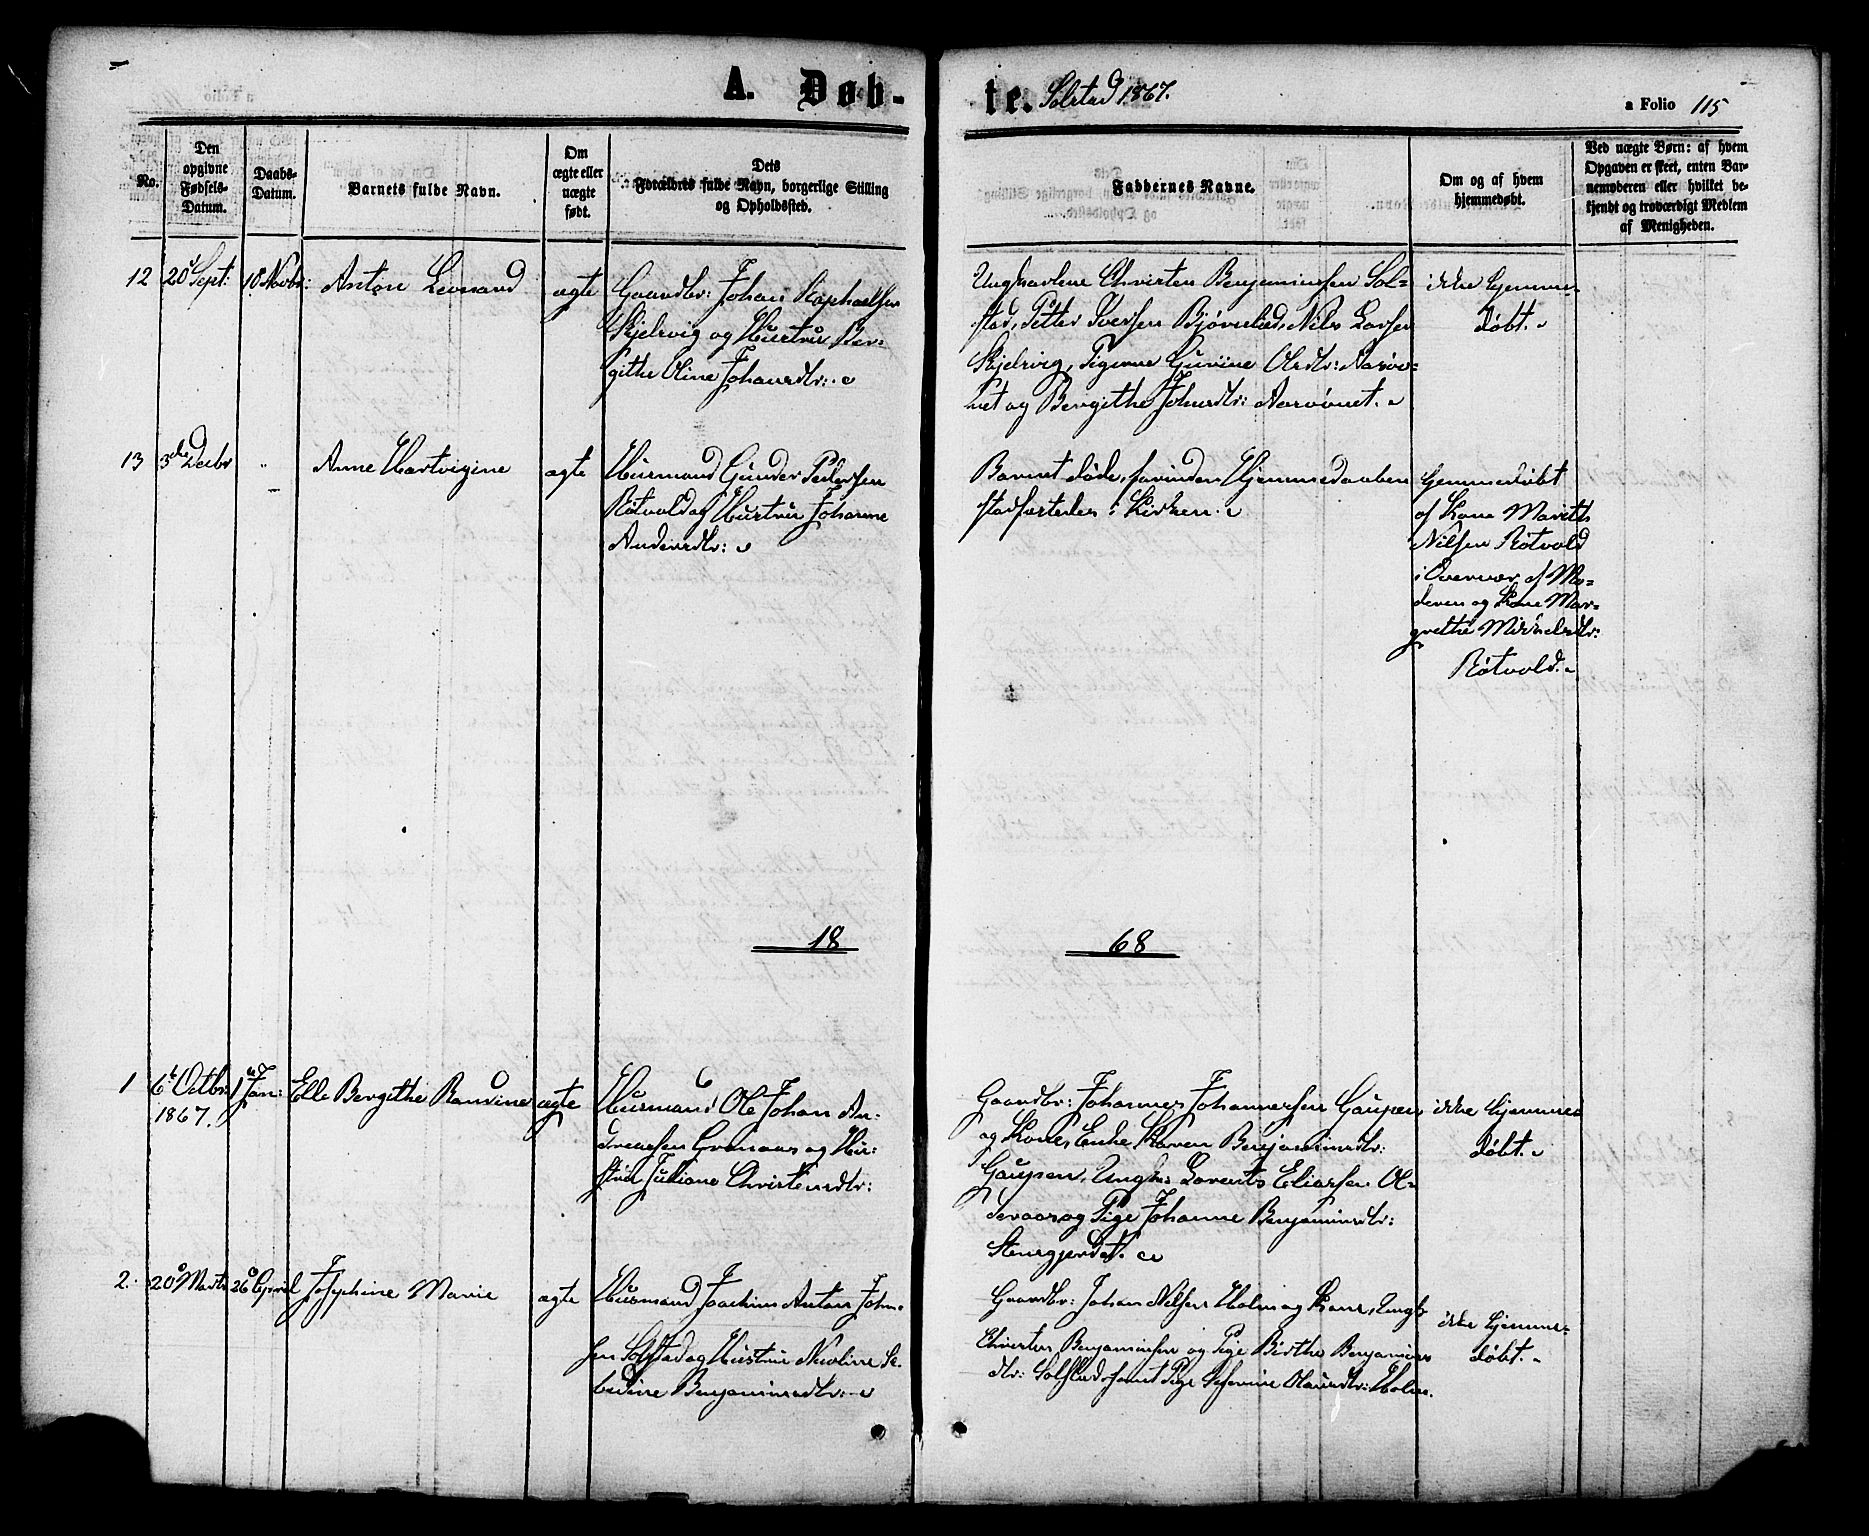 A. Døb-
te. Solstad 1867.
a Folio 115
No.
Den
opgivne
Fødsels-
Datum.
Daabs-
Datum.
Barnets fulde Navn.
Om
ægte eller
uægte
født.
Dets
Forældres fulde Navn, borgerlige Stilling
og Opholdssted.
Faddernes Navne.
Om og af hvem
hjemmedøbt.
Ved uægte Børn: af hvem
Opgaven er skeet, enten Bar-
nemoderen eller hvilket be-
kjendt og troværdigt Medlem
af Menigheden.
12 20 Sept: 10 Novbr: Anton Leonard ægte
Gaardbr: Johan Raphaelsen
Skjelvig og Hustru Ber-
githe Oline Johansdtr:
Ungkarlene Christen Benjaminsen Sol-
stad, Petter Iversen Bjørnlied, Nils Larsen
Skjelvig, Pigerne Guriine Olsdtr:
net og Bergithe Johnsdtr:
ikke hjemme-
døbt.
13 3die Decbr " Anne Hartvigine ægte
Husmand Gunder Pedersen
Røtvold og Hustru Johanne
Andersdtr:
Barnet døde, forinden Hjemmedaaben
stadfæstedes i Kirken.
hjemmedøbt
af Kone Marith
Nilsen Røtvold
i Overvær af Mo-
deren og Kone Mar-
grethe Mikkelsdtr:
Røtvold.
18 68
1 6 Octbr: 1 Jan: Elle Bergithe Randine ægte
1867.
Husmand Ole Johan An-
dreassen Grønaas og Hu-
stru Juliane Christensdtr:
Gaardbr: Johannes Johannessen Gaupen
og Kone, Enke Karen Benjaminsdtr:
Gaupen, Ungk: Lorents Eliassen Ol-
deraas og Pige Johanne Benjaminsdtr:
Stenegjerdet.
ikke hjemme
døbt.
2. 20 Marts 26 April Josephine Marie ægte
Husmand Joachim Anton John-
sen Solstad og Hustru Nicoline Se-
Benjaminsdtr:
Gaardbr: Johan Nilsen Holm og Kone, Ungk:
Christen Benjaminsen og Pige Birthe Benjamins
dtr: Solstad samt Pige Sefanine Olausdtr: Holm.
ikke hjemme-
døbt.